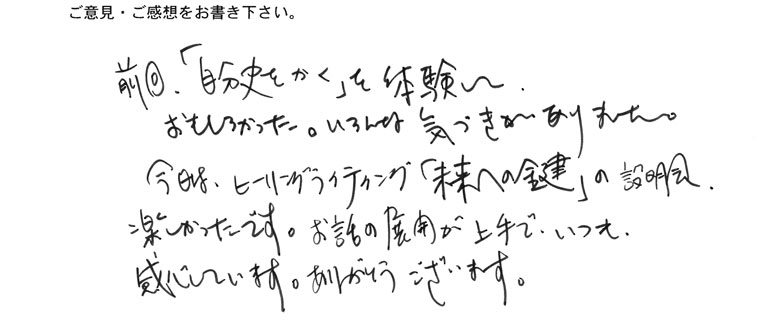 ご意見・ご感想をお書き下さい。
前回、「自分史をかく」を体験し、
おもしろかった。いろんな気づきがありました。
今日は、ヒーリングライティング「未来への鍵」の説明会、
楽しかったです。お話の展開が上手で、いつも、
感心しています。ありがとうございます。